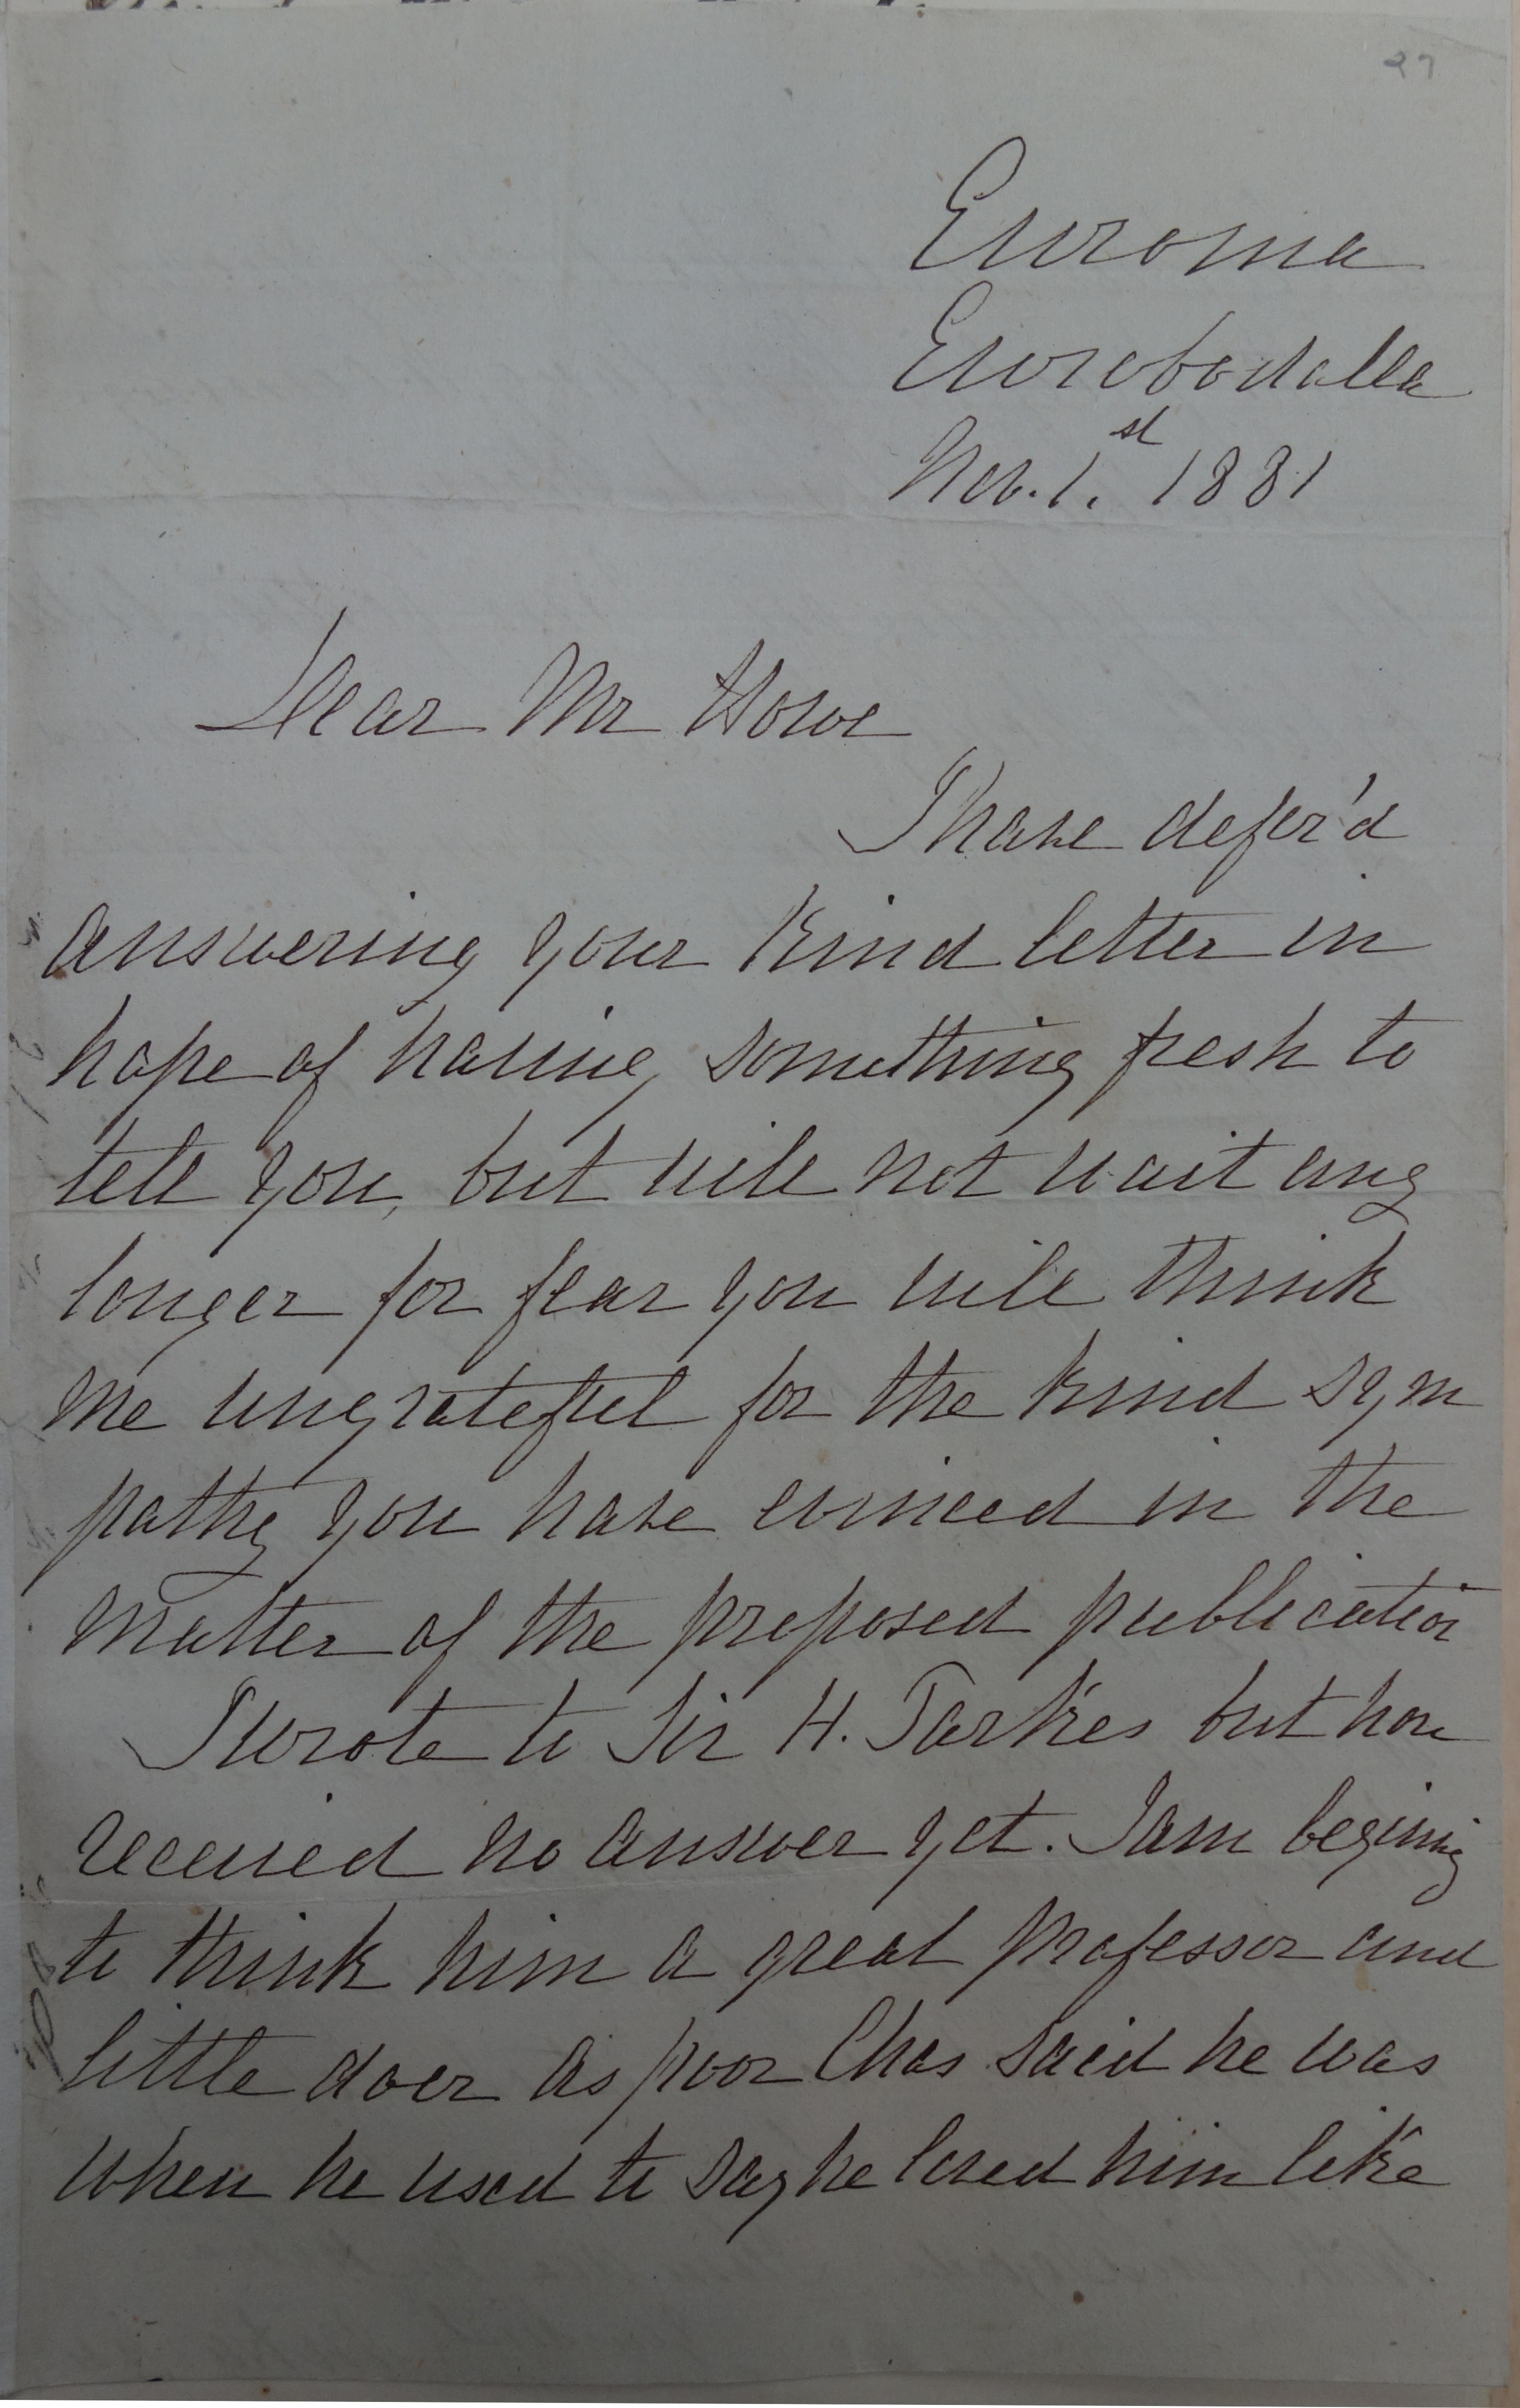 27
Euroma
Eurobodalla
Nov. 1st. 1881
Dear Mr Howe
I have defer'd
answering your kind letter in
hope of having something fresh to
tell you, but will not wait any
longer for fear you will think
me ungrateful for the kind sym
pathy you have evinced in the
matter of the proposed publication
I wrote to Sir H. Parkes but have
received no answer yet. I am begining
to think him a great professor and
little doer as poor Chas said he was
when he used to say he loved him like